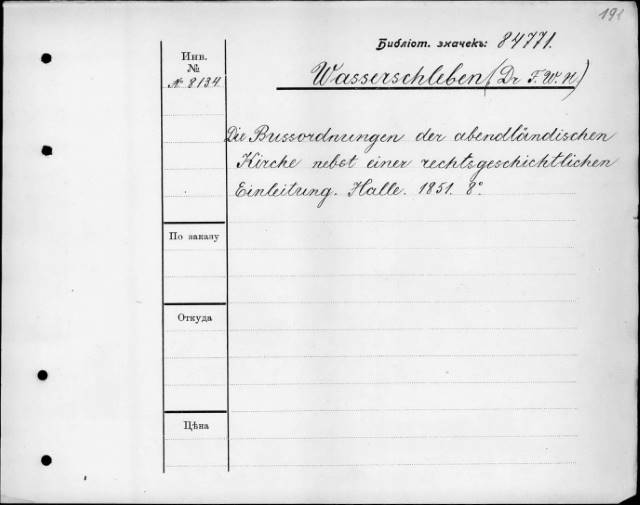 191
Библіот. значекъ: 84771.
Инв.
№
№ 8134
Wasserschleben (Dr F. W. H)
Die Bussordnungen der abendländischen
Kirche nebst einer rechtsgeschichtlichen
Einleitung. Halle. 1851. 8°.
По заказу
Откуда
Цѣна